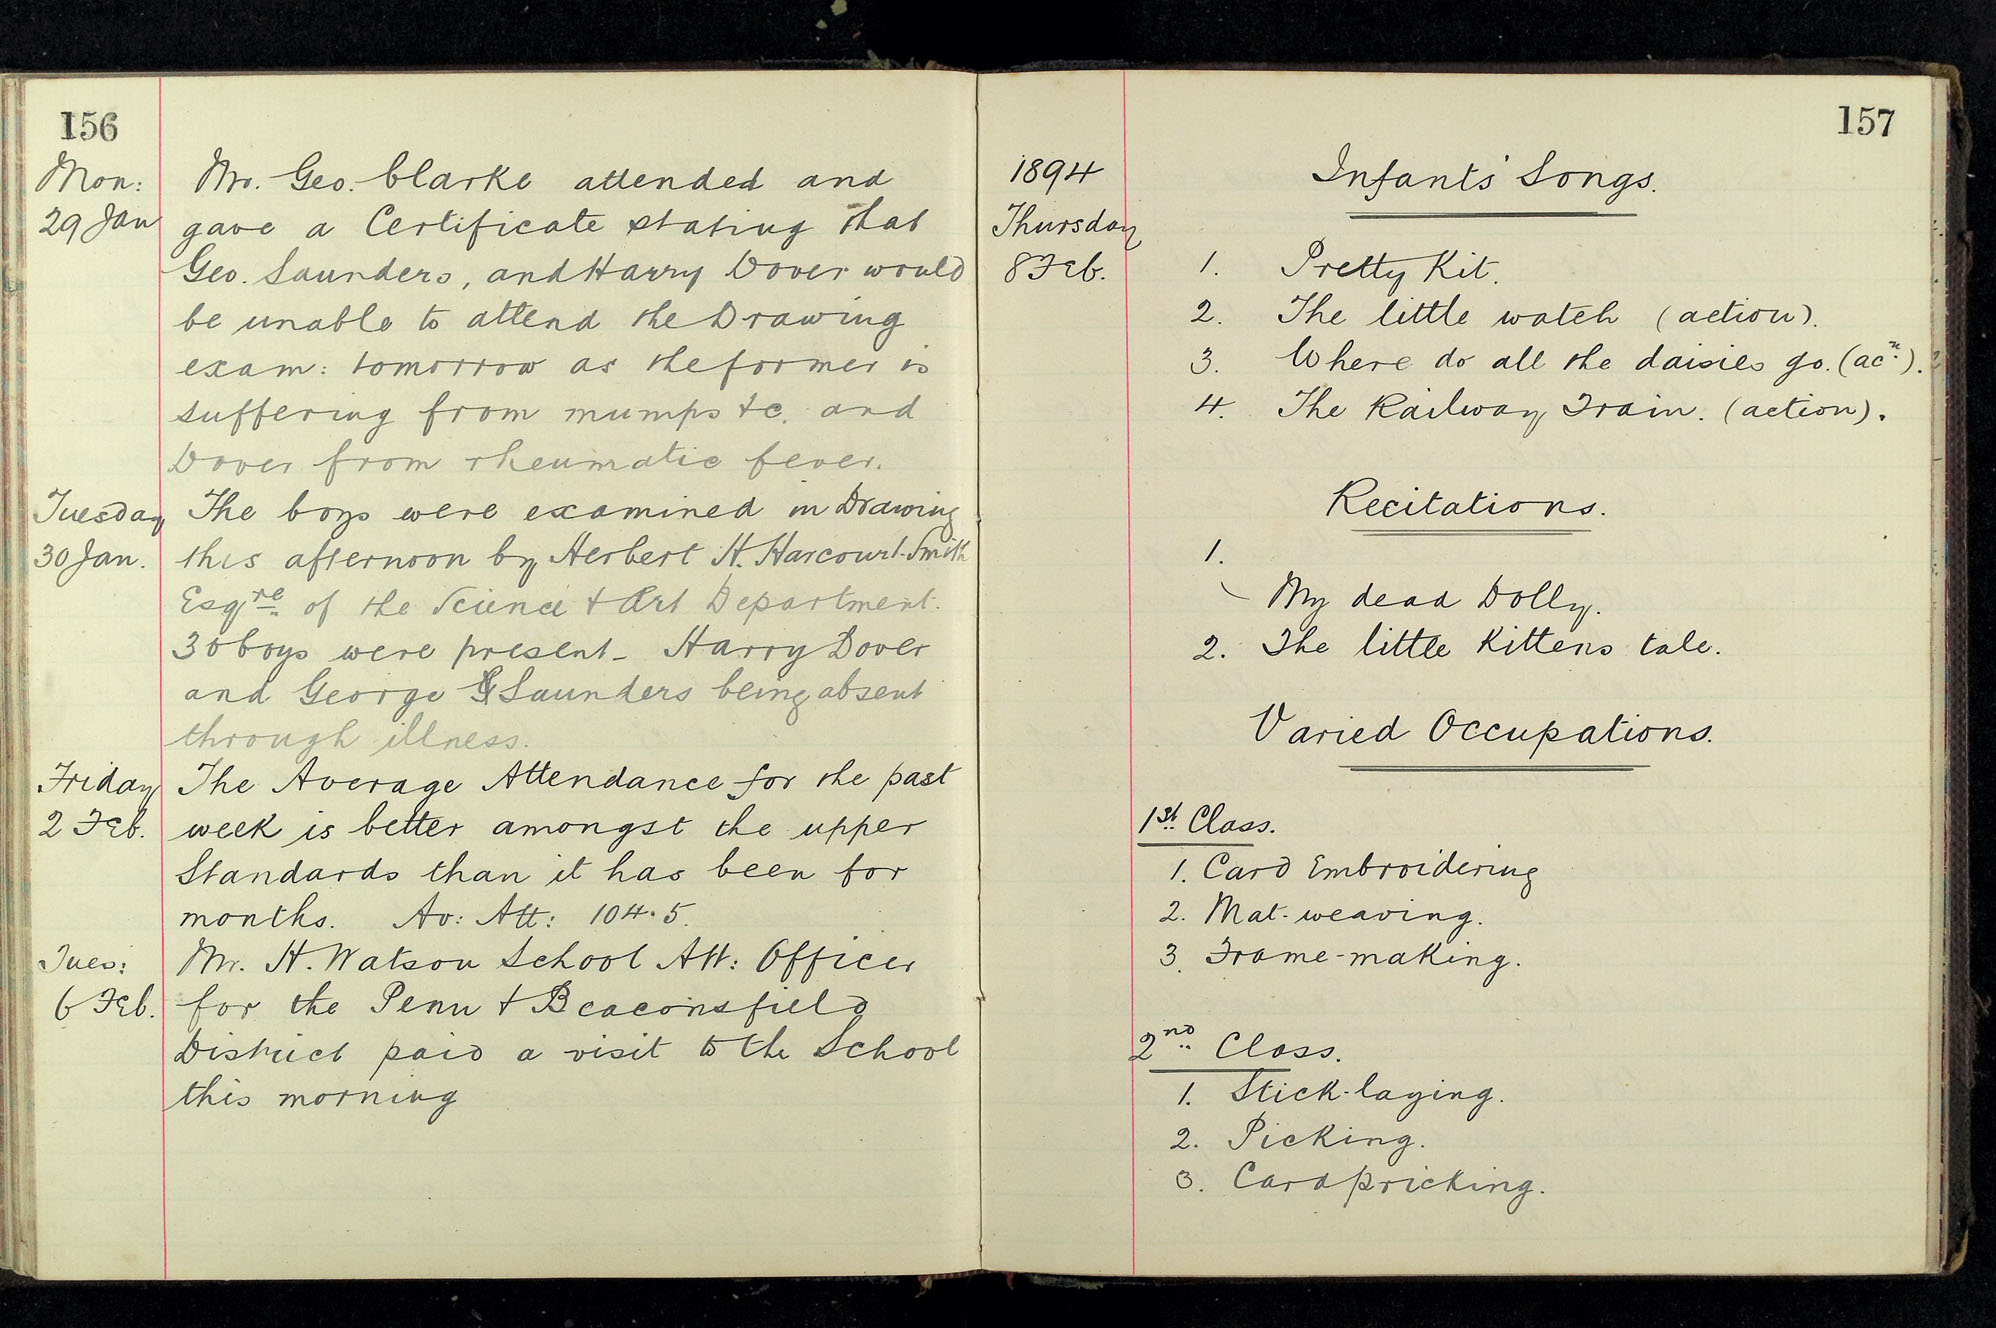 156
Mon: Mr. Geo. Clarke attended and
29 Jan gave a Certificate stating that
Geo. Saunders, and Harry Dover would
be unable to attend the Drawing
exam: tomorrow as the former is
suffering from mumps &c. and
Dover from rheumatic fever.
Tuesday The boys were examined in Drawing
30 Jan. this afternoon by Herbert H. Harcourt-Smith
Esqre. of the Science & Art Department.
30 boys were present - Harry Dover
and George Saunders being absent
through illness.
Friday The Average Attendance for the past
2 Feb. week is better amongst the upper
Standards than it has been for
months. Av: Att: 104.5.
Tues: Mr. H. Watson School Att: Officer
6 Feb. for the Penn & Beaconsfield
District paid a visit to the School
this morning
157
1894 Infants' Songs.
Thursday
8 Feb. 1. Pretty Kit.
2. The little watch (action).
3. Where do all the daisies go. (acn.).
4. The Railway Train. (action).
Recitations.
1.
My dead Dolly.
2. The little Kittens tale.
Varied Occupations.
1st. Class.
1. Card Embroidering
2. Mat-weaving.
3. Frame-making.
2nd. Class.
1. Stick-laying.
2. Picking.
3. Card pricking.